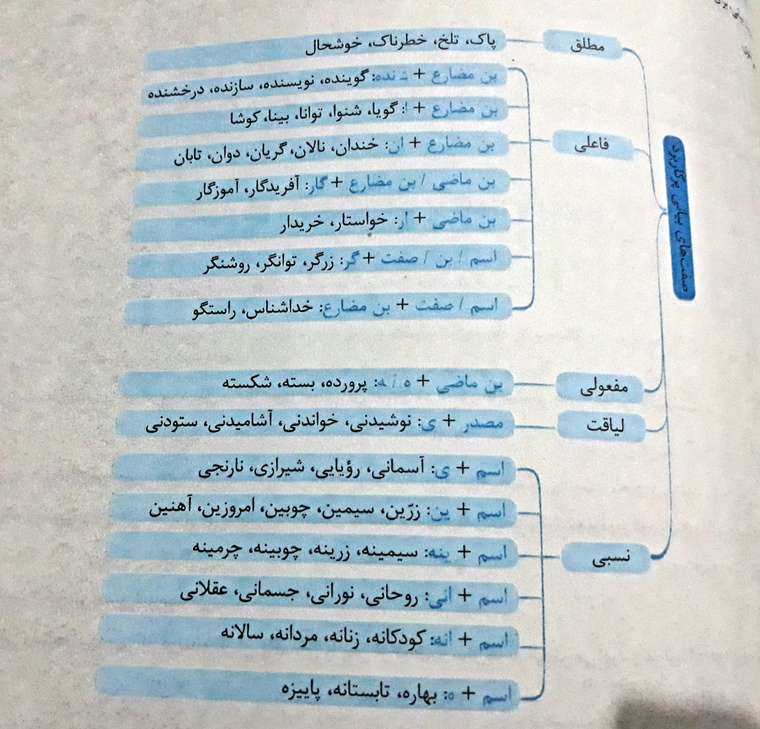 صفت‌های بیانی پرکاربرد
مطلق
پاک، تلخ، خطرناک، خوشحال
فاعلی
بن مضارع + ـَ نده: گوینده، نویسنده، سازنده، درخشنده
بن مضارع + ا: گویا، شنوا، توانا، بینا، کوشا
بن مضارع + ان: خندان، نالان، گریان، دوان، تابان
بن ماضی / بن مضارع + گار: آفریدگار، آموزگار
بن ماضی + ار: خواستار، خریدار
اسم / بن / صفت + گر: زرگر، توانگر، روشنگر
اسم / صفت + بن مضارع: خداشناس، راستگو
مفعولی
بن ماضی + ه / ـه: پرورده، بسته، شکسته
لیاقت
مصدر + ی: نوشیدنی، خواندنی، آشامیدنی، ستودنی
نسبی
اسم + ی: آسمانی، رؤیایی، شیرازی، نارنجی
اسم + ین: زرّین، سیمین، چوبین، امروزین، آهنین
اسم + ینه: سیمینه، زرینه، چوبینه، چرمینه
اسم + انی: روحانی، نورانی، جسمانی، عقلانی
اسم + انه: کودکانه، زنانه، مردانه، سالانه
اسم + ه: بهاره، تابستانه، پاییزه